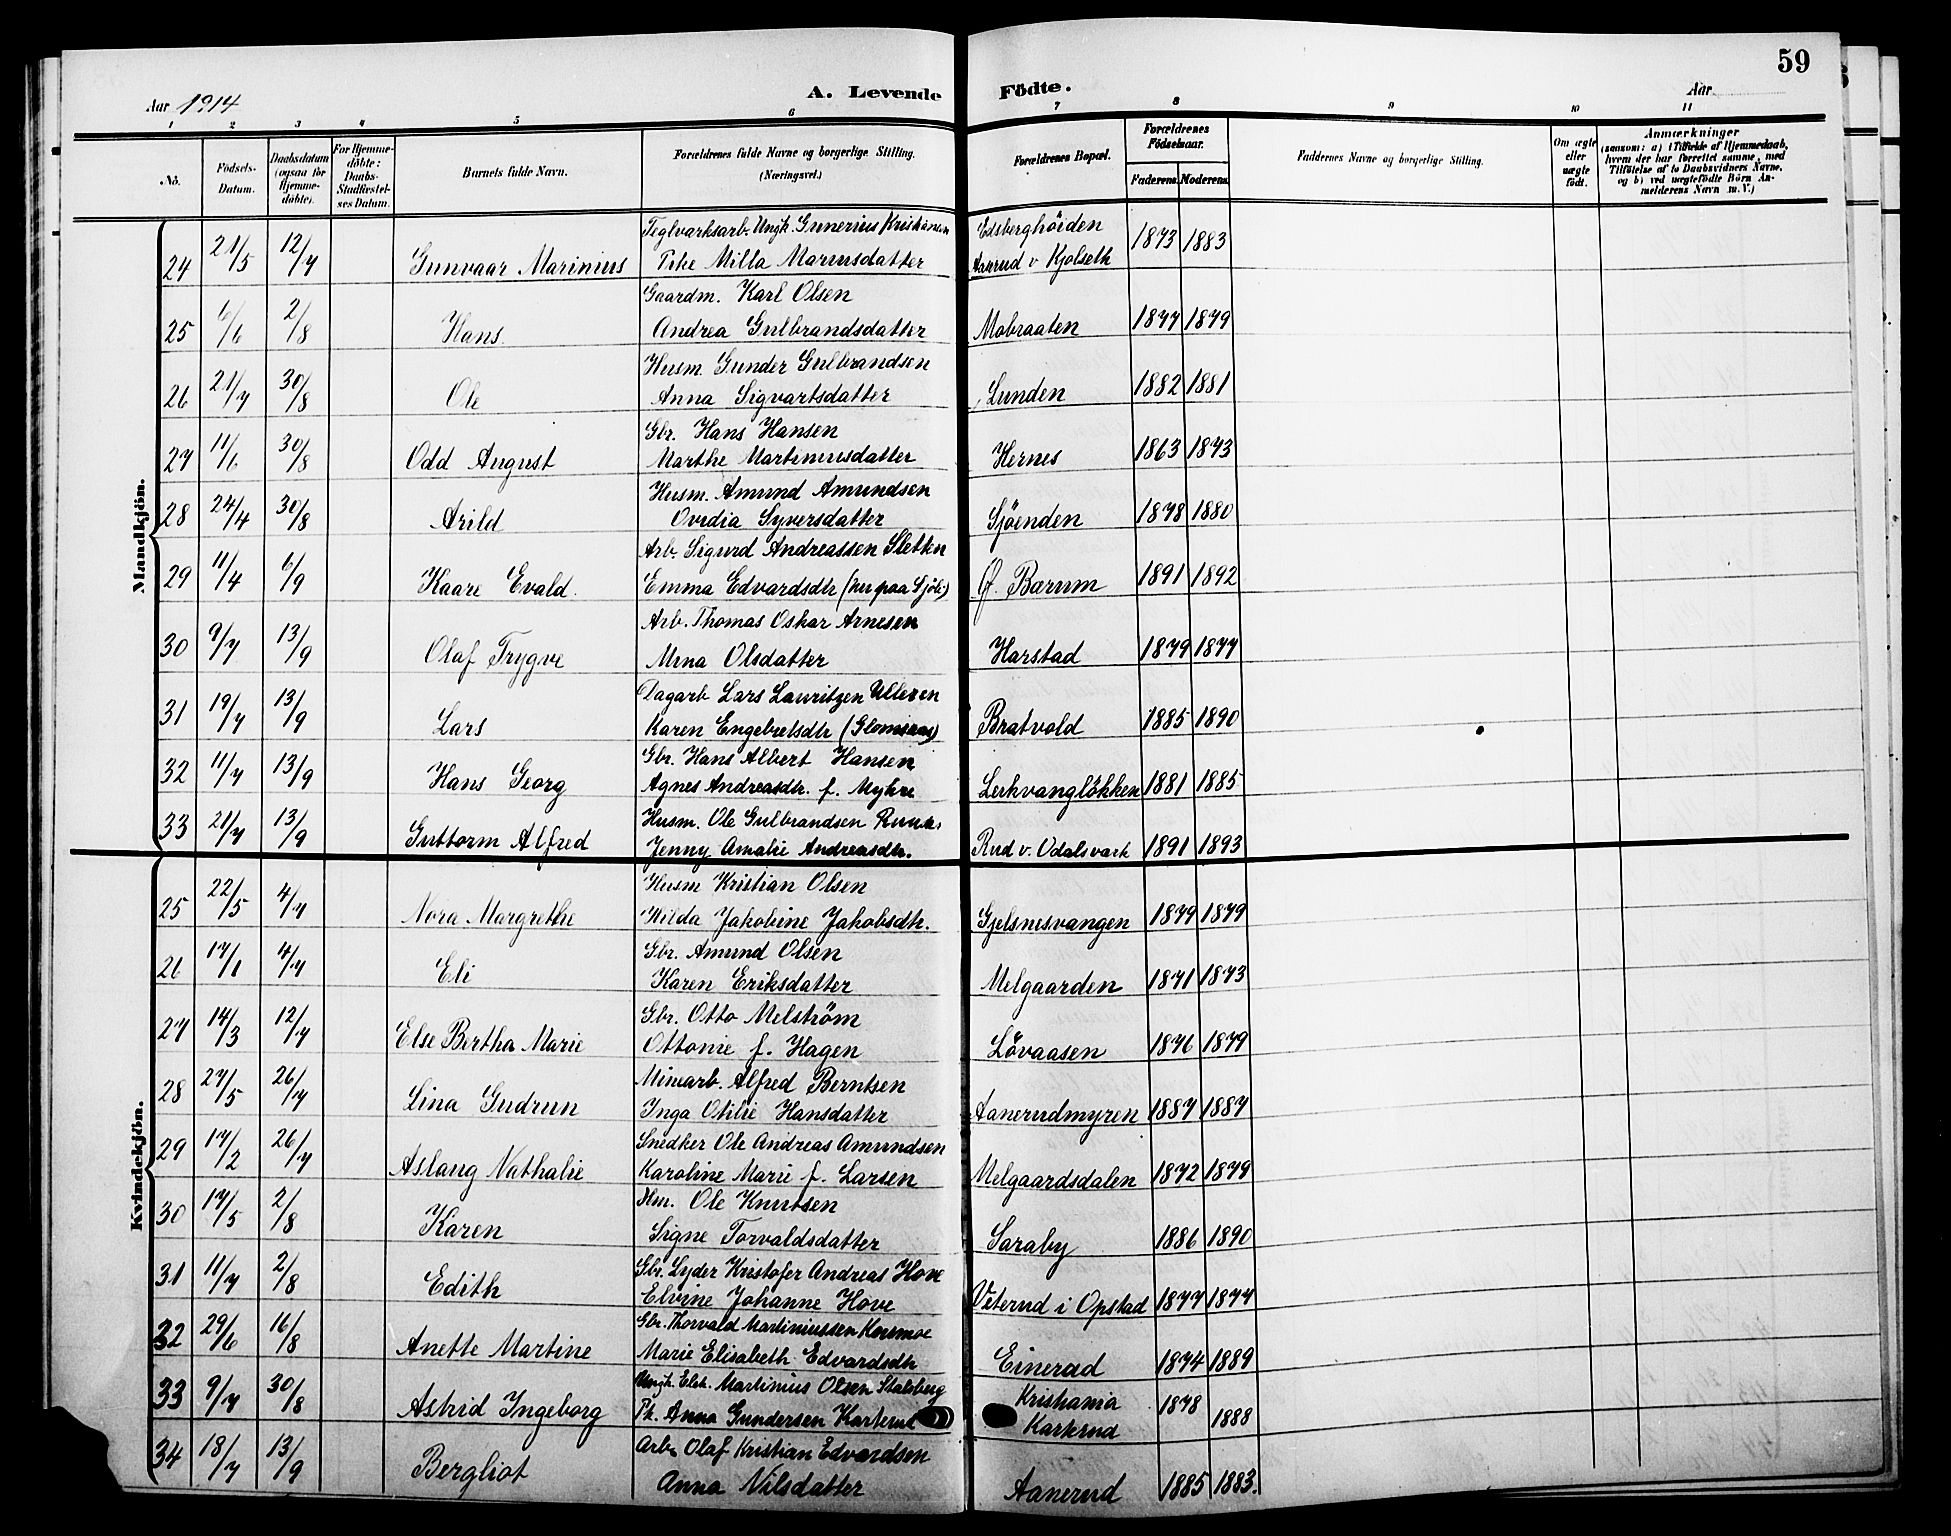 59
Aar 1914 A. Levende Födte. Aar
1 2 3 4 5 6 7 8 9 10 11
No. Födsels-Datum. Daabsdatum (ogsaa for Hjemme-döbte). For Hjemme-döbte: Daabs-Stadfæstel-ses Datum. Barnets fulde Navn. Forældrenes fulde Navne og borgerlige Stilling. (Næringsvei.) Forældrenes Bopæl. Forældrenes Födselsaar. Faderens. Moderens. Faddernes Navne og borgerlige Stilling. Om ægte eller uægte födt. Anmærkninger (saasom: a) i Tilfælde af Hjemmedaab, hvem der har forrettet samme, med Tilföielse af to Daabsvidners Navne, og b) ved uægtefödte Börn An-melderens Navn m. V.)
Mandkjön.
Teglverksarb. Ungk. Gunerius Kristiansen Edsberghöiden
24 21/5 12/7 Gunvaar Marinius Pike Milla Marinusdatter Aanrud v Kjolseth 1873 1883
Gaardm. Karl Olsen
25 6/6 2/8 Hans. Andrea Gulbrandsdatter Mobraaten 1877 1879
Husm. Gunder Gulbrandsen
26 21/7 30/8 Ole Anna Sigvartsdatter Lunden 1882 1881
Gbr. Hans Hansen
27 11/6 30/8 Odd August Marthe Martinusdatter Hernes 1863 1873
Husm. Amund Amundsen
28 24/4 30/8 Arild Ovidia Syversdatter Sjöenden 1878 1880
Arb. Sigurd Andreassen Sletten
29 11/4 6/9 Kaare Evald. Emma Edvardsdtr (her paa Sjöli) Ö. Barum 1891 1892
Arb. Thomas Oskar Arnesen
30 9/7 13/9 Olaf Trygve Mina Olsdatter Harstad 1879 1877
Dagarb Lars Lauritzen Ulleren
31 19/7 13/9 Lars Karen Engebretsdtr (Glomsaas) Bratvold 1885 1890
Gbr. Hans Albert Hansen
32 11/7 13/9 Hans Georg Agnes Andreasdtr. f. Myhre Lerkvanglökken 1881 1885
Husm. Ole Gulbrandsen
33 21/7 13/9 Guttorm Alfred Jenny Amalie Andreasdtr. Rud v. Odalsverk 1891 1893
Kvindekjön.
Husm Kristian Olsen
25 22/5 4/7 Nora Margrethe Hilda Jakobine Jakobsdtr. Gjelsnesvangen 1879 1879
Gbr. Amund Olsen
26 17/1 4/7 Eli Karen Eriksdatter Melgaarden 1871 1873
Gbr. Otto Melström
27 14/3 12/7 Else Bertha Marie Ottonie f. Hagen Lövaasen 1876 1879
Minearb. Alfred Berntsen
28 27/5 26/7 Lina Gudrun Inga Otilie Hansdatter Aanerudmyren 1887 1887
Snedker Ole Andreas Amundsen
29 17/2 26/7 Aslaug Nathalie Karoline Marie f. Larsen Melgaardsdalen 1872 1879
Hm. Ole Knutsen
30 17/5 2/8 Karen Signe Torvaldsdatter Saraby 1886 1890
Gbr. Lyder Kristofer Andreas Hove
31 11/7 2/8 Edith Elvine Johanne Hove Veterud i Opstad 1877 1877
Gbr. Thorvald Martiniussen Kormoe
32 29/6 16/8 Anette Martine Marie Elisabeth Edvardsdtr Einerud 1874 1889
Ungk. Elek. Martinius Olsen Stalsberg Kristiania
33 9/7 30/8 Astrid Ingeborg Pk. Anna Gundersen Karterud Karterud 1878 1888
Arb. Olaf Kristian Edvardsen
34 18/7 13/9 Bergliot Anna Nilsdatter Aanerud 1885 1883.